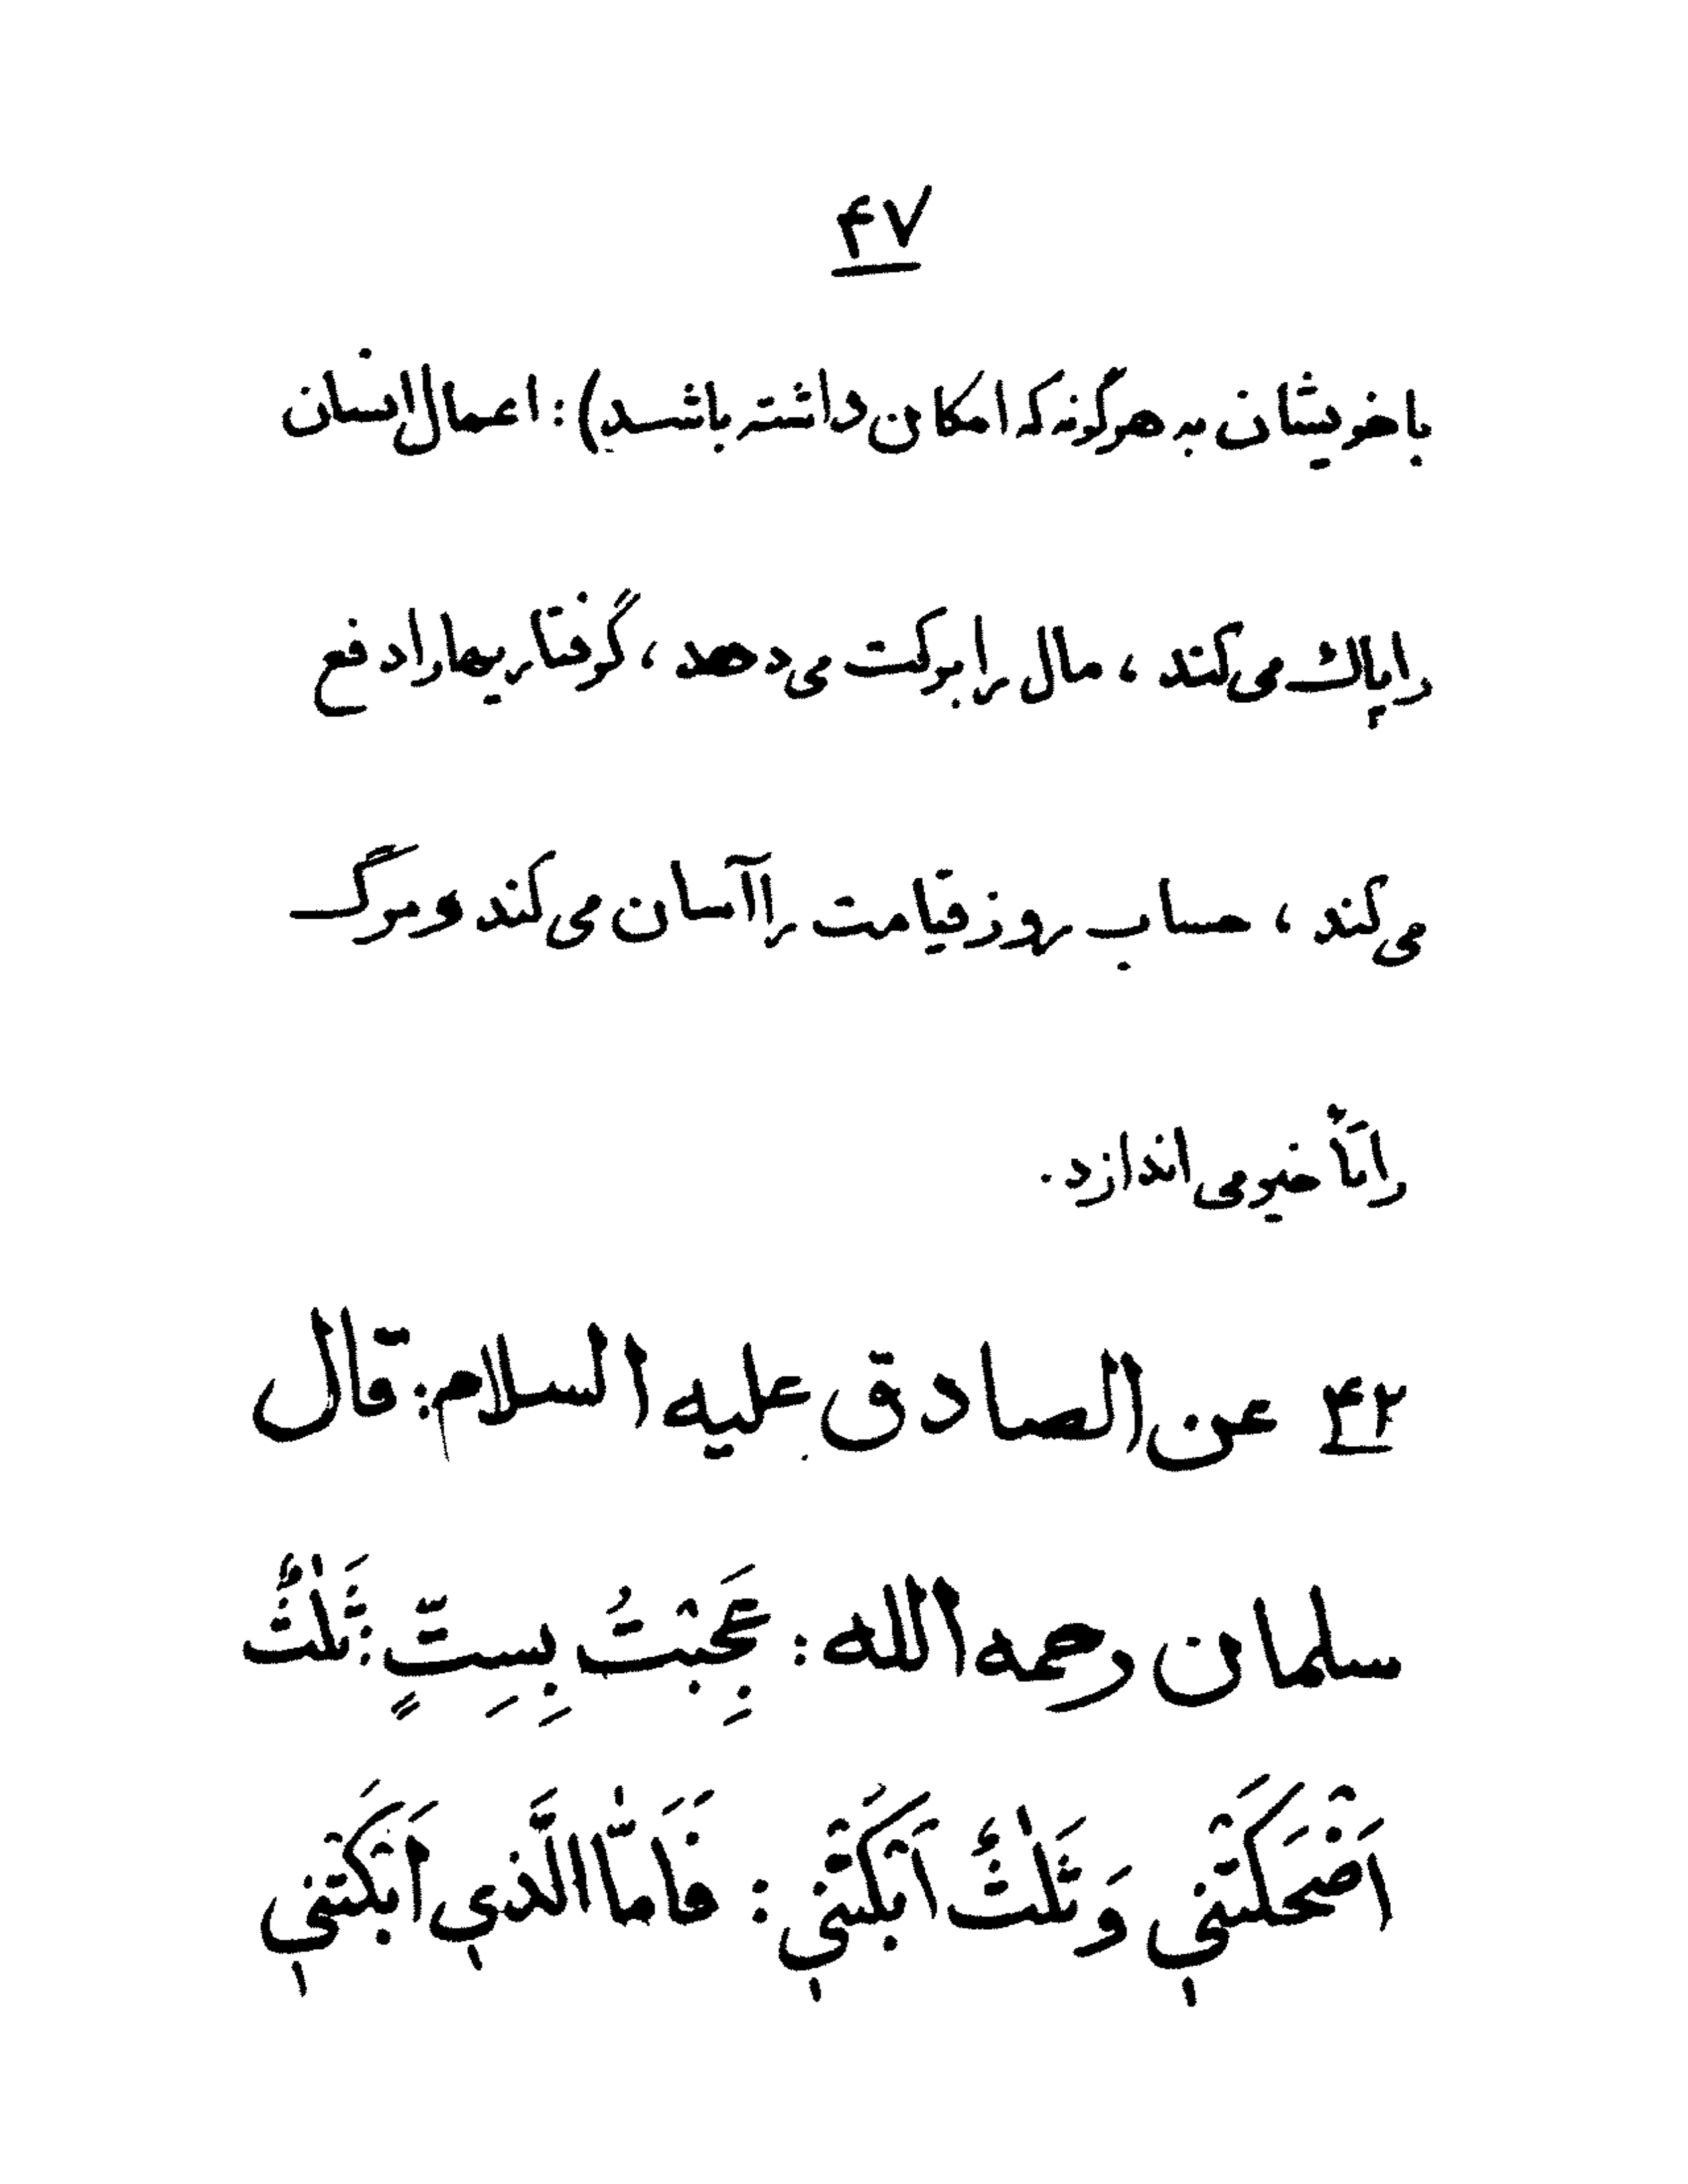 ۴۷
با خویشان به هرگونه که امکان داشته باشد) : اعمال انسان
را پاك می‌کند ، مال را برکت می‌دهد ، گرفتاریها را دفع
می‌کند ، حساب روز قیامت را آسان می‌کند و مرگ
را تأخیر می اندازد .
۴۲ عن الصادق علیه السلام : قال
سلمان رحمه الله : عَجِبْتُ بِسِتٍّ : ثَلٰثٌ
اَضْحَكَتْنِي وَ ثَلٰثٌ اَبْكَتْنِي : فَاَمَّا الَّذِي اَبْكَتْنِي